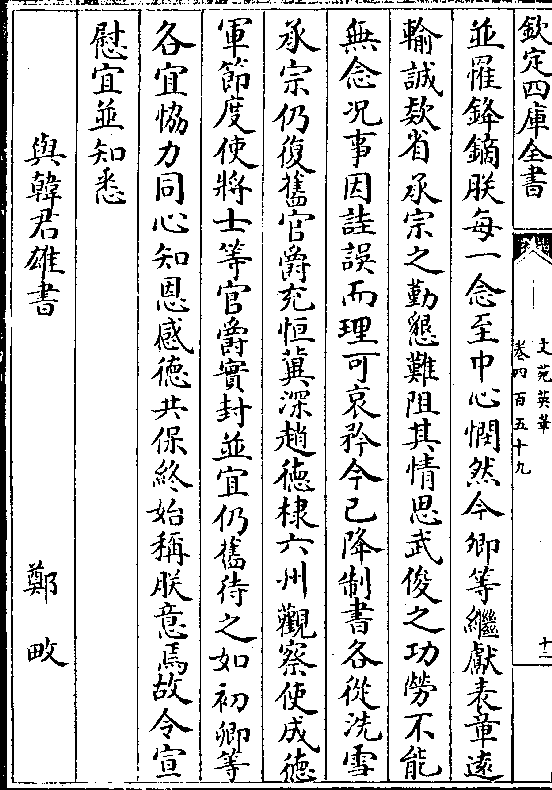 欽定四庫全書
文苑英華
卷四百五十九
十二
並罹鋒鏑朕每一念至中心憫然今卿等繼獻表章遠
輸誠欵省承宗之勤懇難阻其情思武俊之功勞不能
無念況事因詿誤而理可哀矜今已降制書各從洗雪
承宗仍復舊官爵充恒冀深趙德棣六州觀察使成德
軍節度使將士等官爵實封並宜仍舊待之如初卿等
各宜恊力同心知恩感德共保終始稱朕意焉故令宣
慰宜並知悉
與韓君雄書
鄭畋